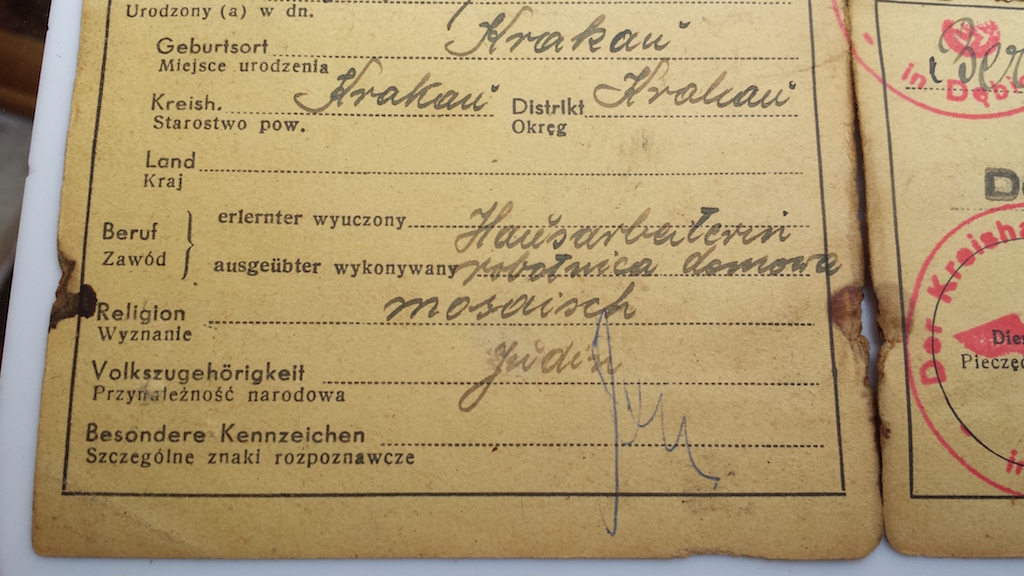 Urodzony (a) w dn.
Geburtsort Krakau
Miejsce urodzenia
Kreish. Krakau Distrikt Krakau
Starostwo pow. Okręg
Land
Kraj
Beruf
Zawód
erlernter wyuczony Hausarbeiterin
ausgeübter wykonywany robotnica domowa
Religion mosaisch
Wyznanie
Volkszugehörigkeit Jüdin
Przynależność narodowa
Besondere Kennzeichen
Szczególne znaki rozpoznawcze
in Dębi
Der Kreisha
Dien
Pieczęć